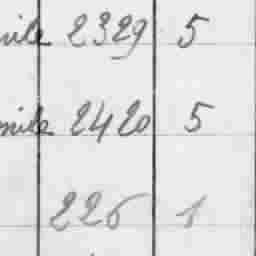 mile 2329 5
mile 2420 5
226 1